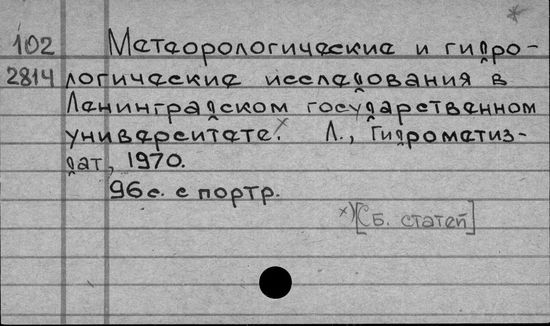 102 Метеорологические и гидро-
2814 логические исследования в
Ленинградском государственном
университете.ˣ Л., Гидрометиз-
дат, 1970.
96с. с портр.
х) [Сб. статей]